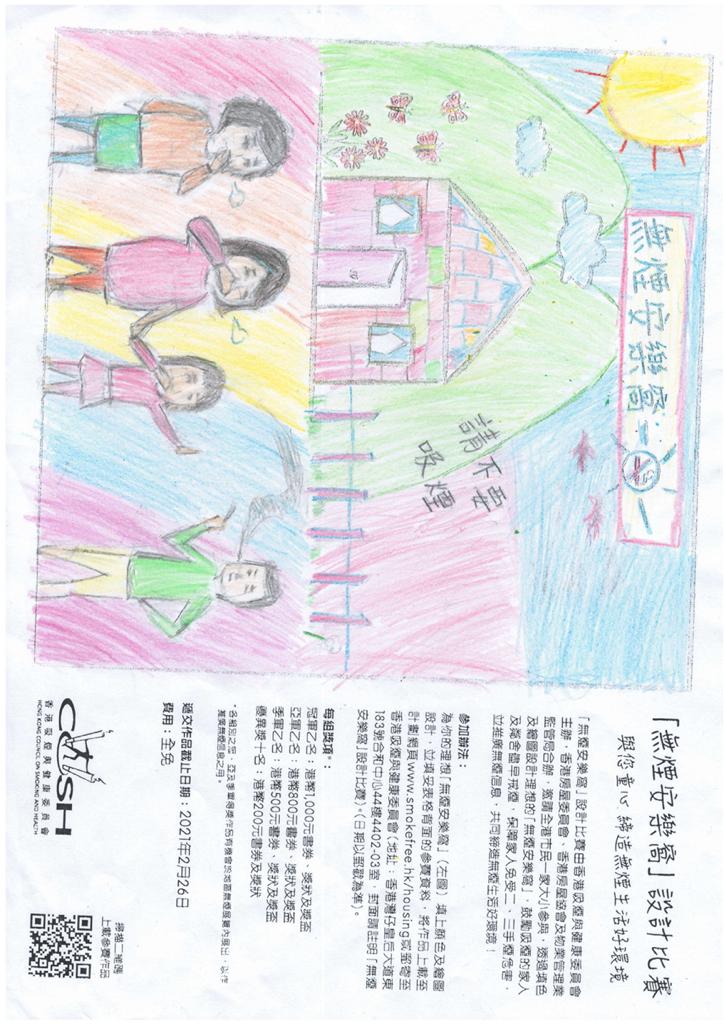 無煙安樂窩
請不要
吸煙
「無煙安樂窩」設計比賽
與您童心 締造無煙生活好環境
「無煙安樂窩」設計比賽由香港吸煙與健康委員會
主辦，香港房屋委員會、香港房屋協會及物業管理業
監管局合辦，邀請全港市民一家大小參與，透過填色
及繪圖設計理想的「無煙安樂窩」，鼓勵吸煙的家人
及鄰舍儘早戒煙，保障家人免受二、三手煙危害，
並推廣無煙信息，共同締造無煙生活好環境！
參加辦法：
為你的理想「無煙安樂窩」（左圖）填上顏色及繪圖
設計，並填妥表格背面的參賽資料，將作品上載至
計劃網頁www.smokefree.hk/housing或郵寄至
香港吸煙與健康委員會（地址：香港灣仔皇后大道東
183號合和中心44樓4402-03室，封面請註明「無煙
安樂窩」設計比賽）。（日期以郵戳為準）。
每組獎項*：
冠軍乙名：港幣1,000元書券、獎狀及獎盃
亞軍乙名：港幣800元書券、獎狀及獎盃
季軍乙名：港幣500元書券、獎狀及獎盃
優異獎十名：港幣200元書券及獎狀
*各組別之冠、亞及季軍得獎作品有機會於地區無煙展覽內展出，以作
推廣無煙信息之用。
遞交作品截止日期：2021年2月26日
費用：全免
COSH
香港吸煙與健康委員會
HONG KONG COUNCIL ON SMOKING AND HEALTH
掃描二維碼
上載參賽作品